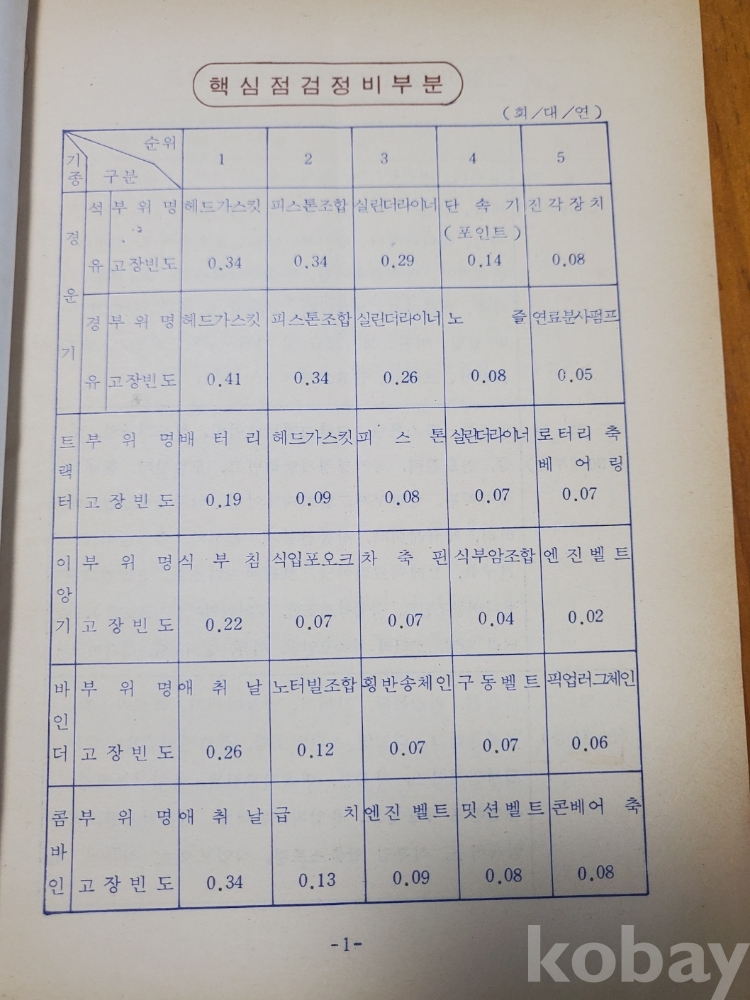 핵심점검정비부분
(회/대/연)
기종 구분 순위 1 2 3 4 5
경운기 석유 부위명 헤드가스킷 피스톤조합 실린더라이너 단속기(포인트) 진각장치
고장빈도 0.34 0.34 0.29 0.14 0.08
경유 부위명 헤드가스킷 피스톤조합 실린더라이너 노즐 연료분사펌프
고장빈도 0.41 0.34 0.26 0.08 0.05
트랙터 부위명 배터리 헤드가스킷 피스톤 실린더라이너 로터리축베어링
고장빈도 0.19 0.09 0.08 0.07 0.07
이앙기 부위명 식부침 식입포오크 차축핀 식부암조합 엔진벨트
고장빈도 0.22 0.07 0.07 0.04 0.02
바인더 부위명 애취날 노터빌조합 횡반송체인 구동벨트 픽업러그체인
고장빈도 0.26 0.12 0.07 0.07 0.06
콤바인 부위명 애취날 급치 엔진벨트 밋션벨트 콘베어축
고장빈도 0.34 0.13 0.09 0.08 0.08
-1-
kobay